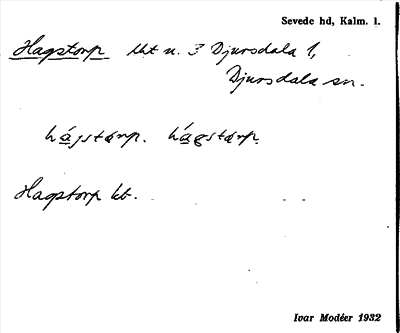 Sevede hd, Kalm. l.
Hagstorp lht u. 3 Djursdala 1,
Djursdala sn.
hágstarp.
Hagstorp kt.
Ivar Modéer 1932